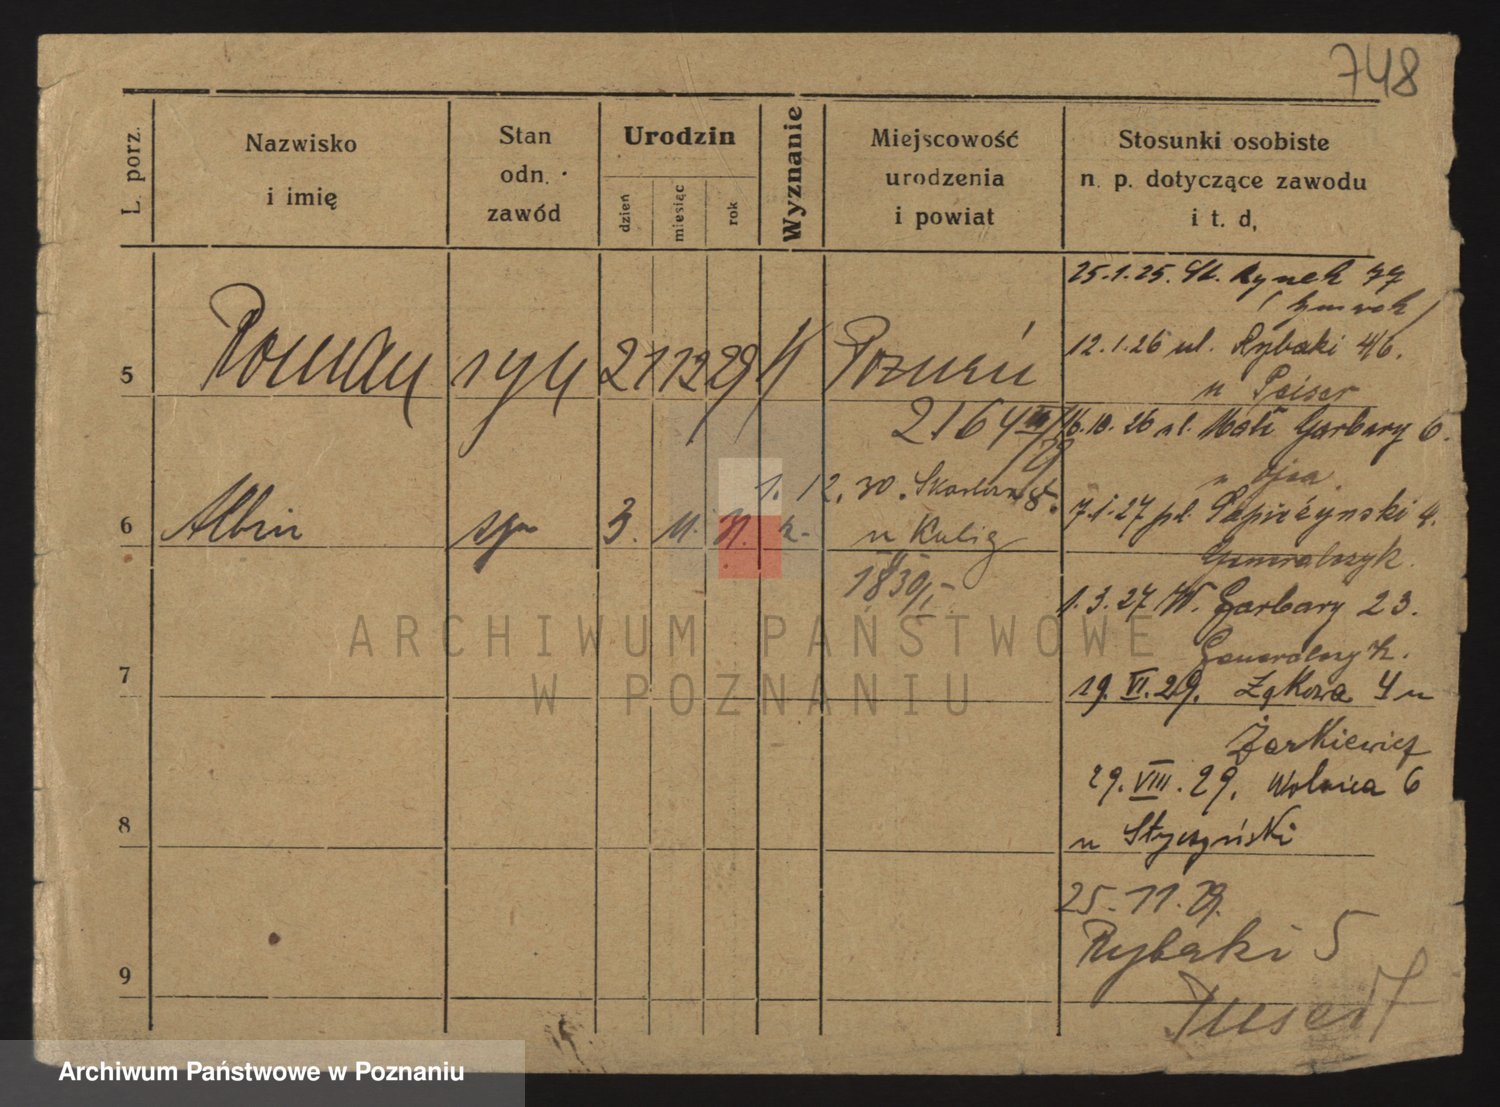 748
L. porz.
Nazwisko
i imię
Stan
odn.
zawód
Urodzin
dzień
miesiąc
rok
Wyznanie
Miejscowość
urodzenia
i powiat
Stosunki osobiste
n. p. dotyczące zawodu
i t. d,
5
Roman
syn
21
12
29
K
Poznań
2164
6
Albin
syn
3.
11.
31.
k.
1. 12. 30.
8.
u Kulig
1839/I
7
8
9
25.1.25. St. Rynek 77
12.1.26 ul. Rybaki 4/6.
u Peiser
16.10.26 ul. Małe Garbary 6.
u ojca.
7.1.27 pl. Sapieżyński 4.
Generalczyk.
1.3.27 W. Garbary 23.
Generalczyk.
19. VI. 29. Łąkowa 4 u
Żarkiewicz
29. VIII. 29. Wolnica 6
u Styczyński
25. 11. 29.
Rybaki 5
ARCHIWUM PAŃSTWOWE
W POZNANIU
Archiwum Państwowe w Poznaniu